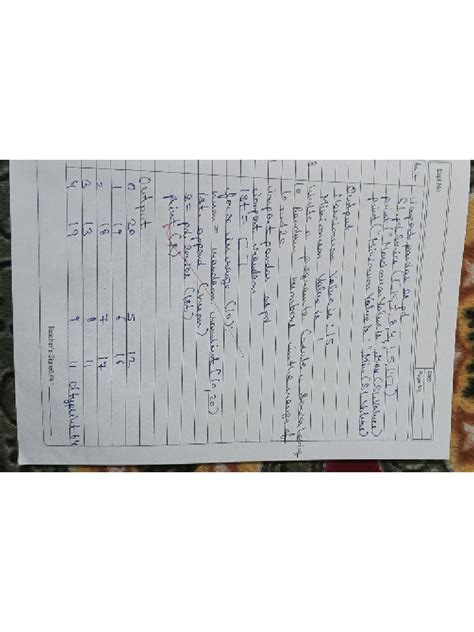 Expt. No.
Date
Page No.
Ans. import pandas as pd
print ("Maximum Value is:
print ("Minimum Value is:
Output
Maximum Value is : 15
Minimum Value is 1
8. Write a program to Create a Series having
10 Random numbers in the range of
10 and 20
import pandas as pd
import random
lst = [ ]
for x in range (10):
num = random.randint (10,20)
lst.append (num)
s = pd.Series (lst)
print (s)
Output
0 20 5 12
1 19 6 16
2 18 7 17
3 13 8 11
4 19 9 11 dtype:int64
Teacher's Signature